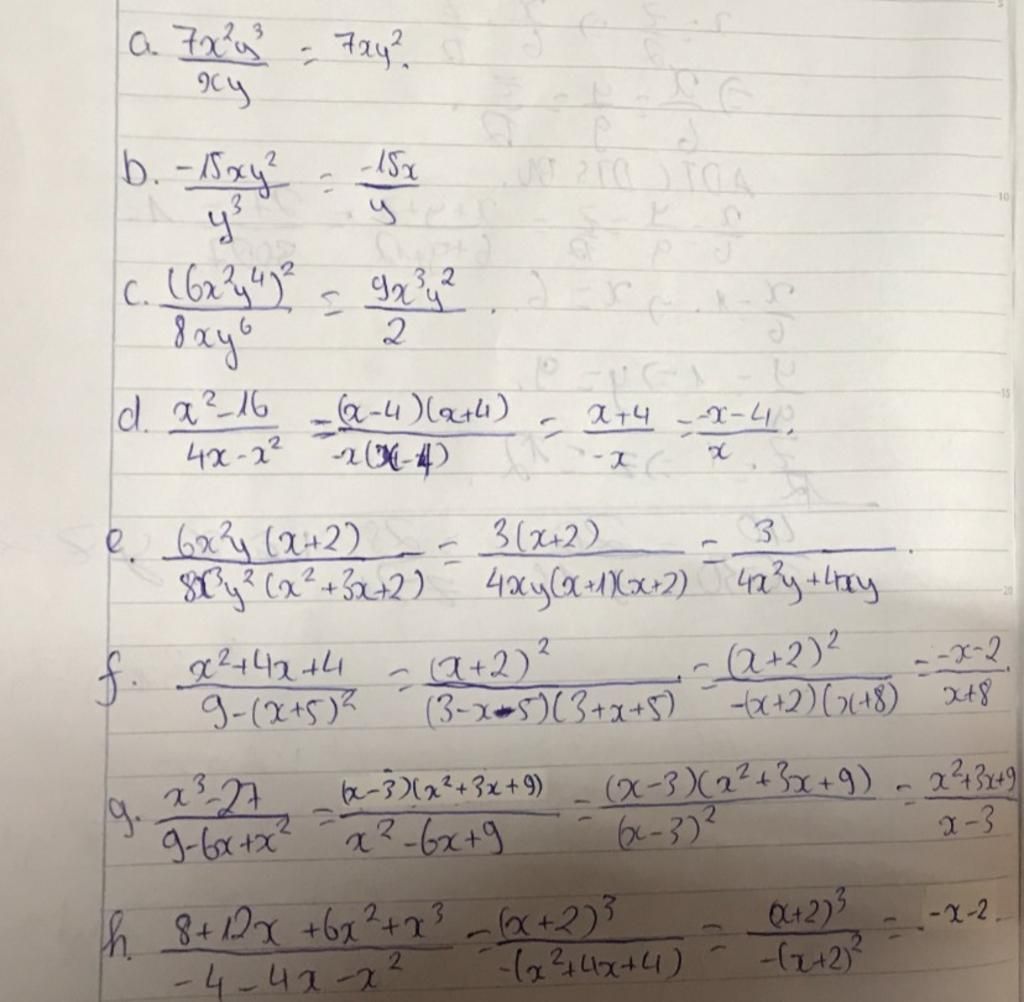 a. 7x²y³/xy = 7xy².
b. -15xy²/y³ = -15x/y
c. (6x²y⁴)²/8xy⁶ = 9x³y²/2 .
d. x²-16/4x-x² = (x-4)(x+4)/-x(x-4) = x+4/-x = -x-4/x.
e. 6x²y(x+2)/8x³y²(x²+3x+2) = 3(x+2)/4xy(x+1)(x+2) = 3/4x²y+4xy .
f. x²+4x+4/9-(x+5)² = (x+2)²/(3-x-5)(3+x+5) = (x+2)²/-(x+2)(x+8) = -x-2/x+8.
g. x³-27/9-6x+x² = (x-3)(x²+3x+9)/x²-6x+9 = (x-3)(x²+3x+9)/(x-3)² = x²+3x+9/x-3
h. 8+12x+6x²+x³/-4-4x-x² = (x+2)³/-(x²+4x+4) = (x+2)³/-(x+2)² = -x-2